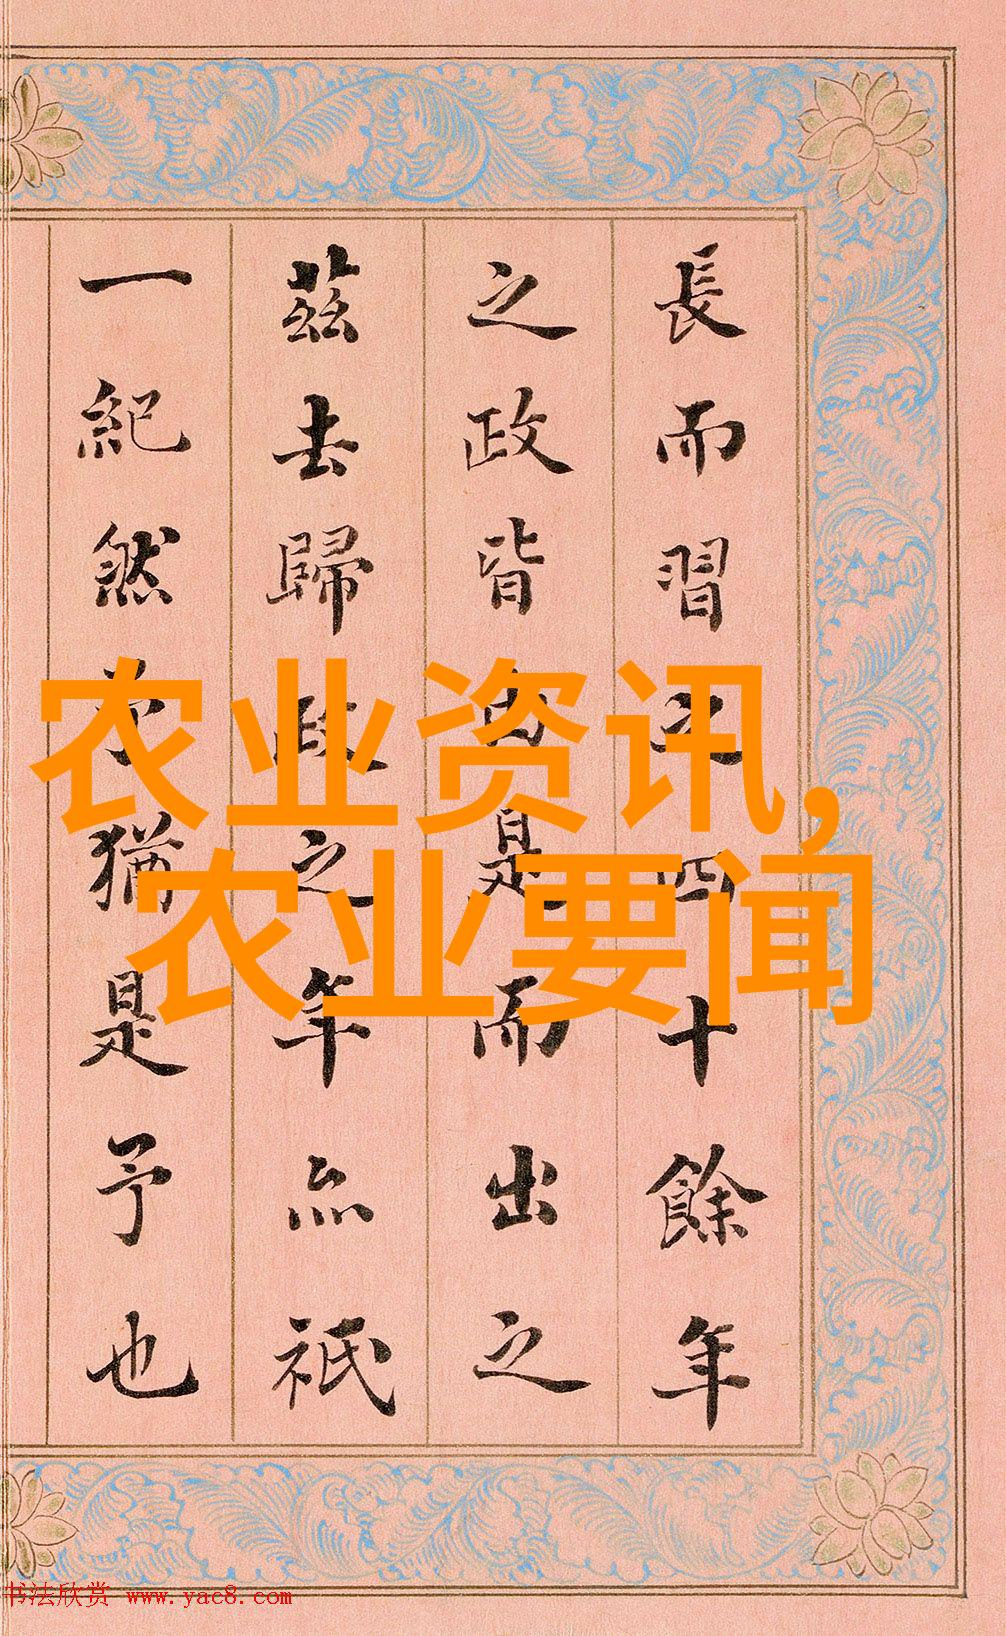 長而習之四十餘年
之政皆由是而出之
茲去歸政之年亦祇
一紀然予猶是予也
农业资讯,
农业要闻
书法欣赏 www.yac8.com